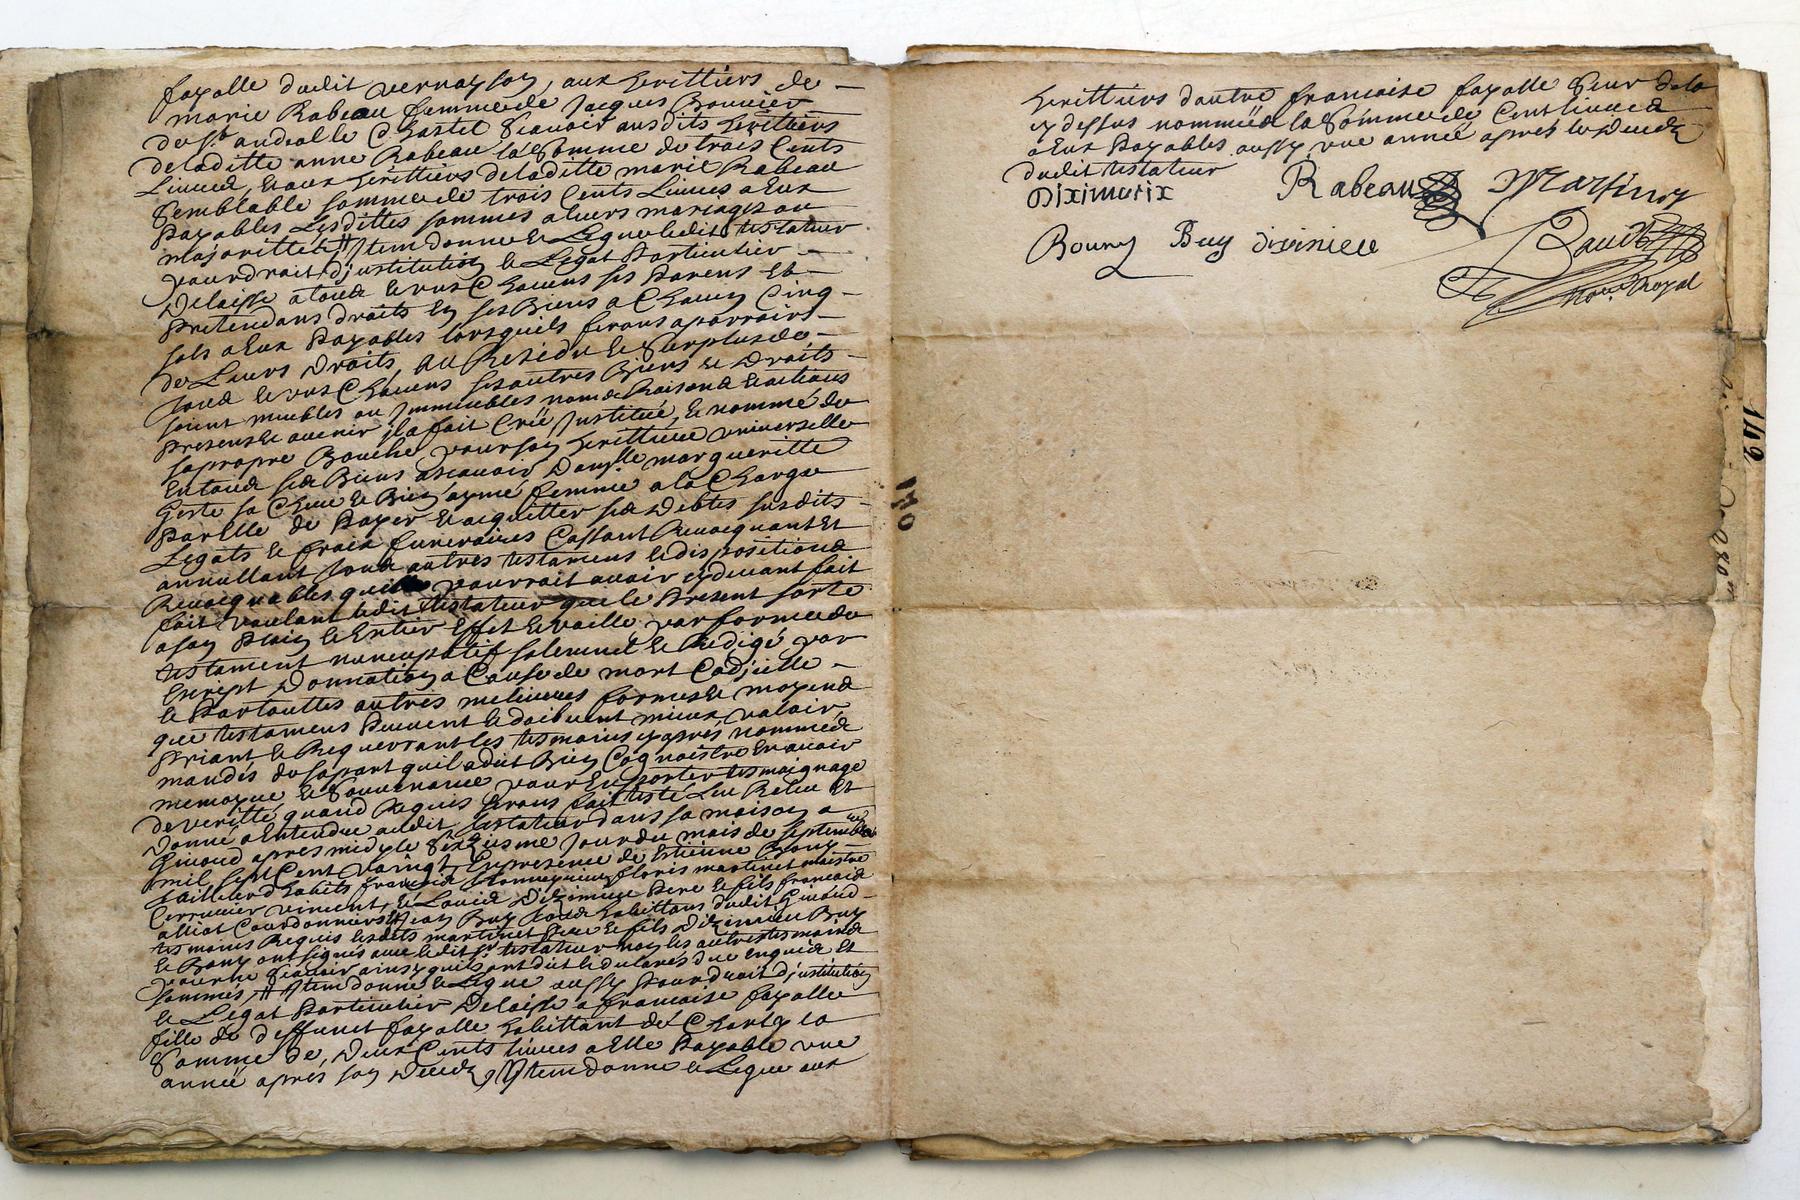 fayolle dudit vernaysoy, aux herittiers de
marie Rabeau femme de Jacques Bouvier
du St. andeol le Chastel Scavoir ausdits herittiers
de laditte anne Rabeau la Somme de trois Cents
Livres, et aux herittiers de laditte marie Rabeau
Semblable somme de trois Cents Livres a Eux
payables Lesdittes sommes a leurs mariages ou
majorittés, Item donne et Legue ledit testateur
pour droit d'institution et Legat Particulier
Delaisse a tous et uns Chacuns ses Parens et
pretendans droits En ses Biens a Chacun Cinq
sols a Eux Payables lorsquils feront aparroirs
de Leurs Droits, au Residu et Surplus de
tous et uns Chacuns ses autres Biens et Droits
soient meubles ou Immeubles noms Raisons et actions
presens et avenir il a fait Crée, Institué, et nommé de
sa propre Bouche, pour son herittiere universelle
En tous ses Biens a scavoir Damlle margueritte
Geste sa Chere et Bien aymé femme a la Charge
par Elle de Payer et acquitter ses Debtes susdits
Legats et fraix funeraires Cassant Revocquant et
annullant tous autres testamens et dispositions
Revocquables quil pourrait avoir cy devant fait
fait voulant ledit testateur que le Present sorte
a son Plein et Entier Effet et vaille par forme de
testament nuncupatif solemnel et Redigé par
Escript Donnation a Cause de mort Codicille
et Par touttes autres melieures formes et moyens
que testamens Peuvent et doibvent mieux valoir,
Priant et Requerrant les tesmoins cy aprés nommés
mandés de sa part quil a dit Bien Cognoistre En avoir
memoyre et Souvenance pour En porter tesmoignage
de veritté quand Requis Seront fait testé Leu Releu et
Donné a Entendre audit testateur dans sa maison a
Givord apres midy le Sixiesme Jour du mois de Septembre
mil sept Cent vaingt En presence de Estienne Bouny
Tailleur d habits francois floris martinet maistre
Cerrurier vincent, et Louis Diximieux Pere et fils francois
alliot Courdonniers Jean Buy tous habittans dudit Givord
tesmoins Requis lesdits martinet Pere et fils Diximieu Buy
et Bouny ont signés avec ledit Sr. testateur non les autres tesmoins
pour ne Scavoir ainsy quils ont dit et declarés de ce enquis et
sommés, Item donne et Legue aussy pour droit d'institution
et Legat Particulier Delaisse a francoise fayolle
fille de deffunct fayolle habittant de Charly la
Somme de Deux Cents livres a Elle Payable une
année aprés son Decedz, Item donne et Legue aux
herittiers d autre francoise fayolle Seur de la
cy dessus nommés la Somme de Cent livres
a Eux Payables aussy une année aprés le Decedz
dudit testateur
Diximieix Rabeau Martiny
Bouny Buy diximieu Baudt
Nore. Royal
170
142